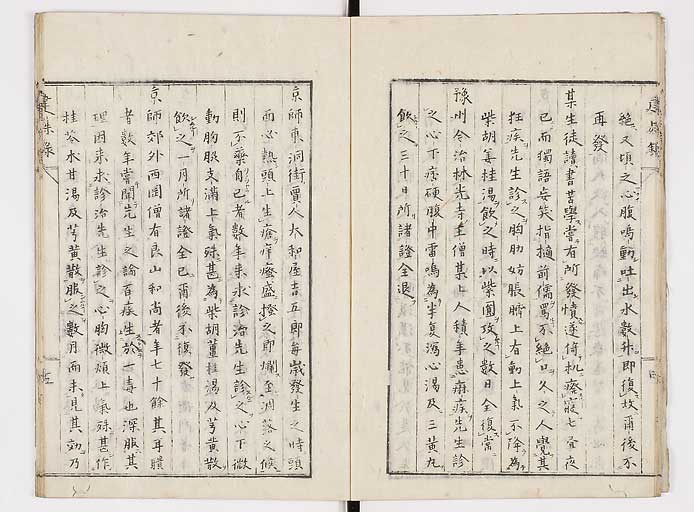 絶又頃之心腹鳴動吐出水數升即復故爾後不
再發
某生徒讀書苦學嘗有所發憤遂倚机廢寢七晝夜
已而獨語妄笑指擿前儒罵不絶口久之人覺其
狂疾先生診之胸肋妨脹臍上有動上氣不降為
柴胡薑桂湯飲之時以紫圓攻之數日全復常
豫州今治林光寺主僧某上人積年患痳疾先生診
之心下痞硬腹中雷鳴為半夏瀉心湯及三黃丸
飲之三十日所諸證全退
建殊録
京師東洞街賈人大和屋吉五郎每歲發生之時頭
面必熱頭上生瘡痒瘙盛搔之即爛至凋落之候
則不藥自已者數年來求診治先生診之心下微
動胸肋支滿上氣殊甚為柴胡薑桂湯及芎黃散
飲之一月所諸證全已爾後不復發
京師郊外西岡僧有良山和尚者年七十餘其耳聵
者數年嘗聞先生之論百疾生於一毒也深服其
理因來求診治先生診之心胸微煩上氣殊甚作
桂苓朮甘湯及芎黃散服之數月而未見其効乃
建殊録